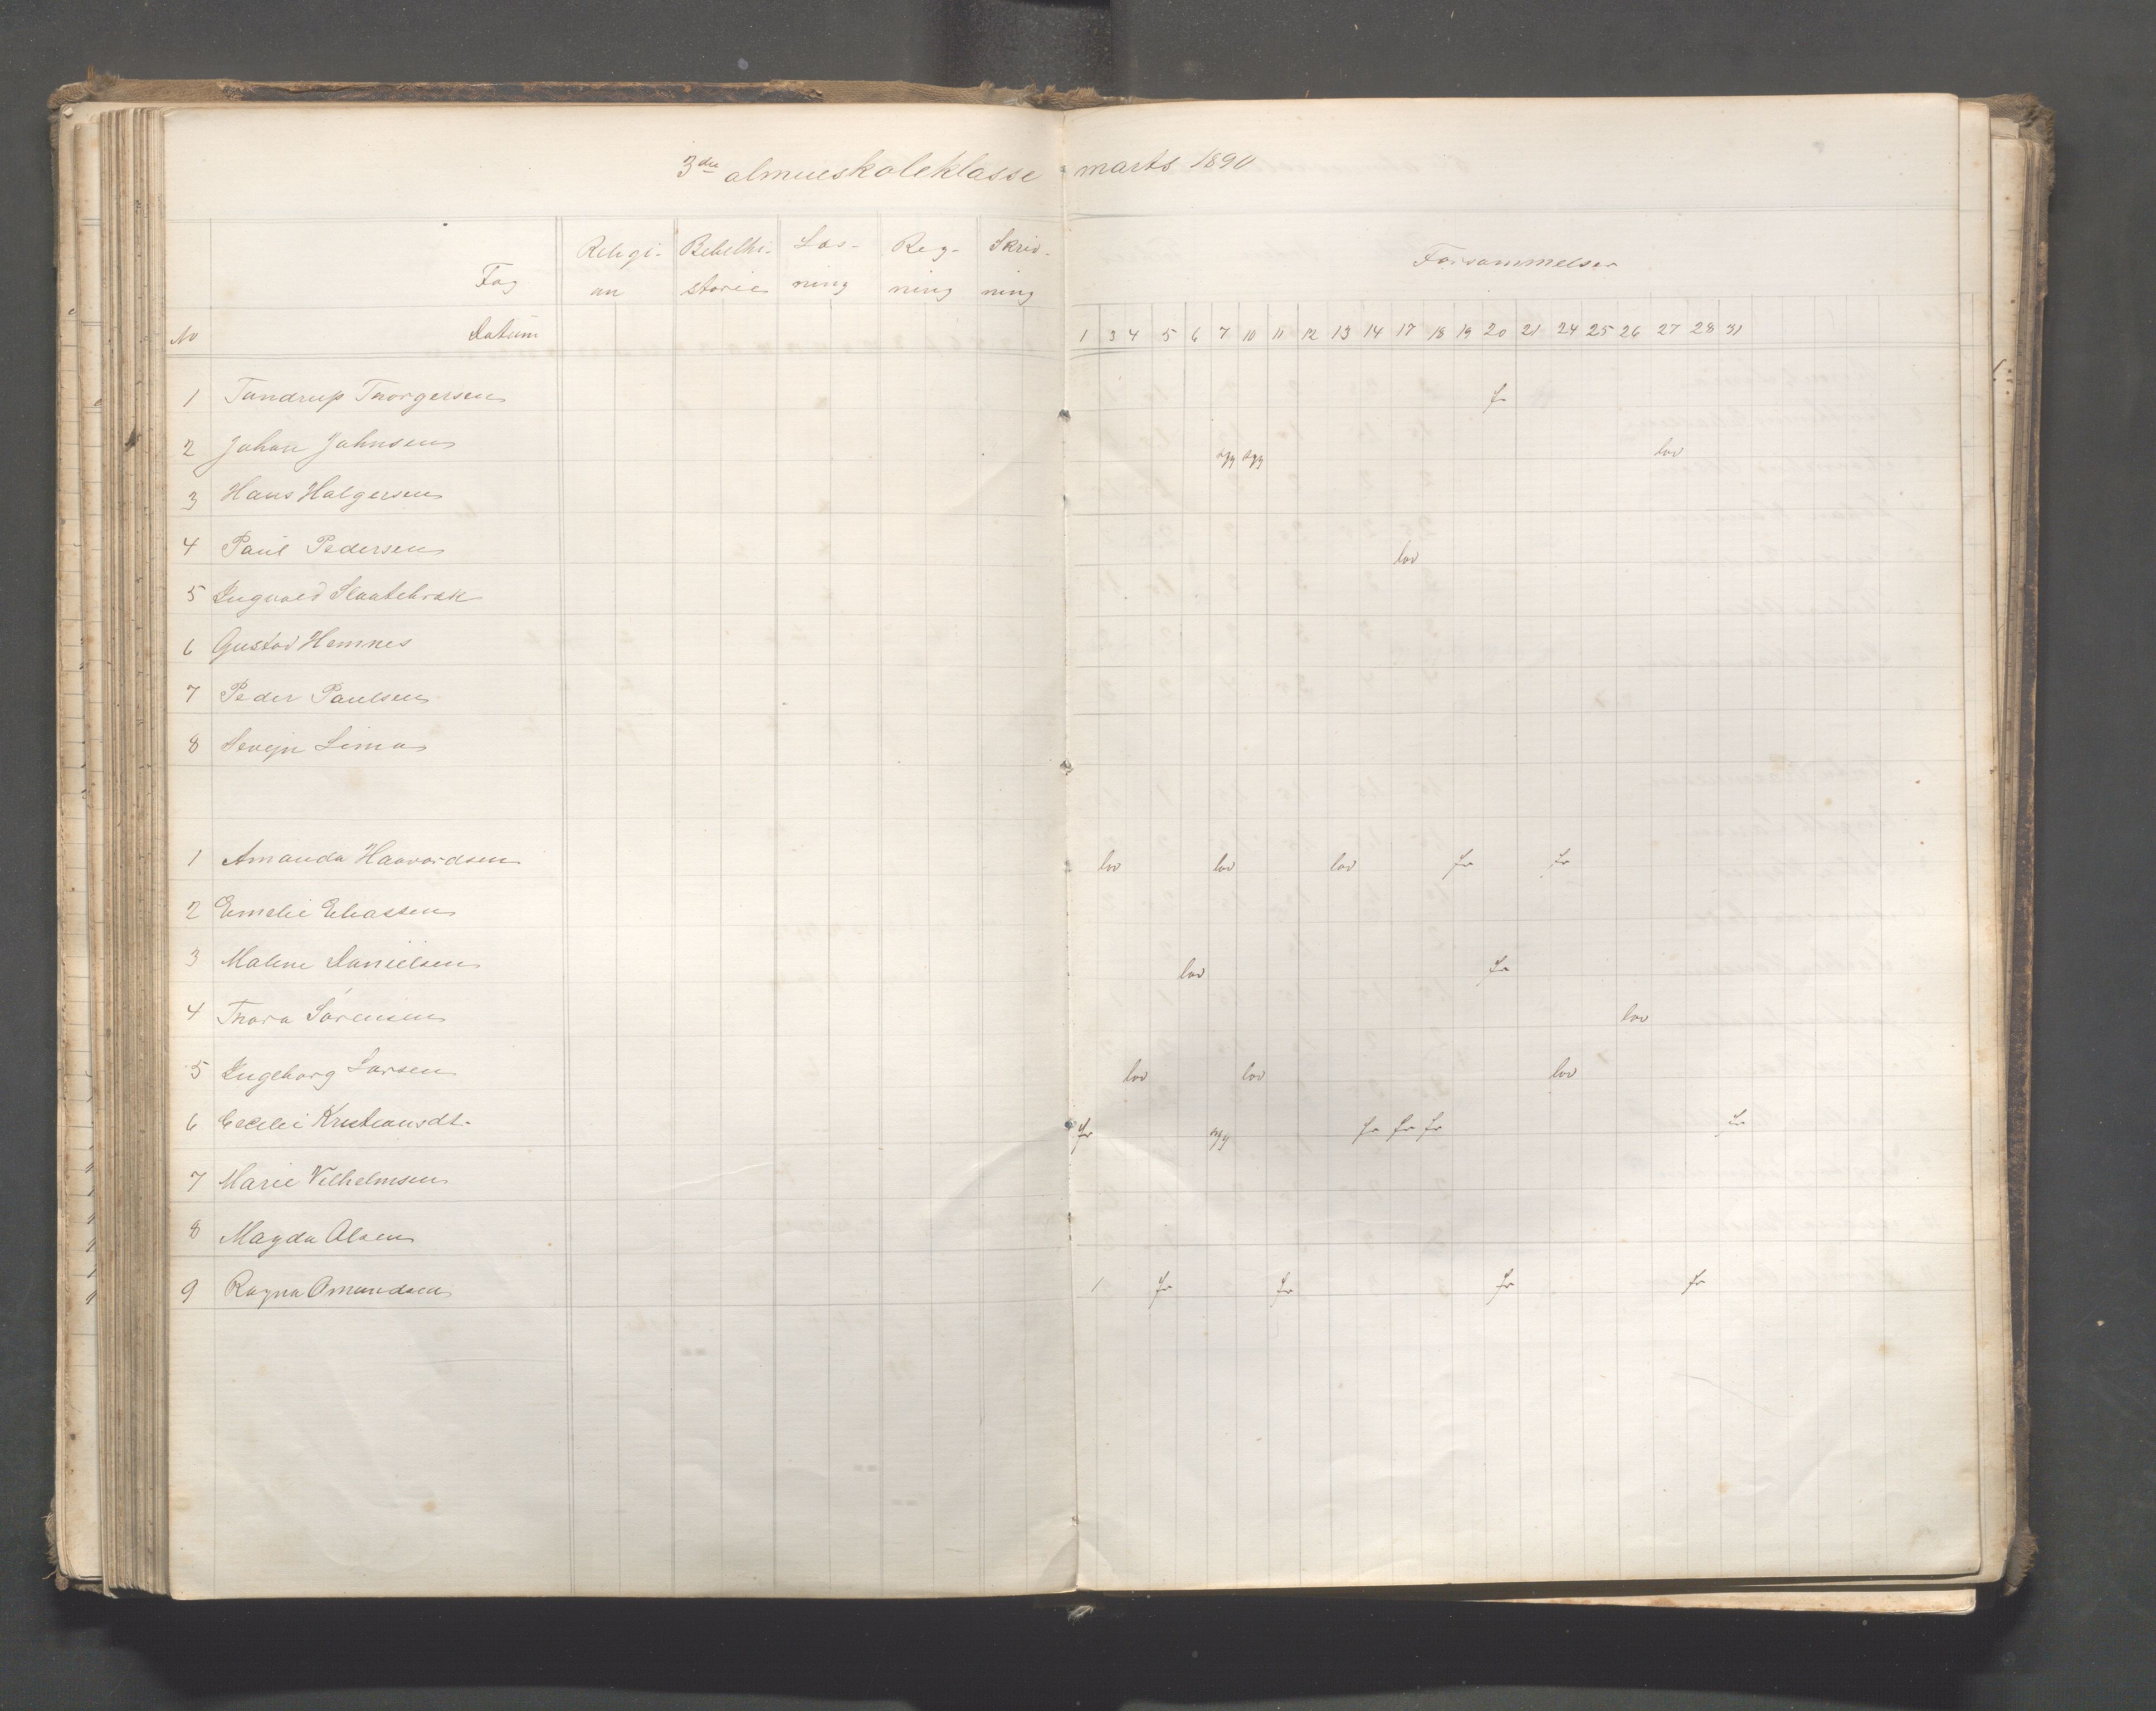 3die almueskoleklasse marts 1890
Fag Religi- Bibelhi- Læs- Reg- Skriv- Forsømmelser
on storie ning ning ning
No Datum 1 3 4 5 6 7 10 11 12 13 14 17 18 19 20 21 24 25 26 27 28 31
1 Tandrup Thorgersen fr
2 Johan Johnsen syg syg lov
3 Hans Holgersen
4 Paul Pedersen lov
5 Ingvald Slaatebræk
6 Gustav Hemnes
7 Peder Paulsen
8 Sevejn Lima
1 Amanda Haavardsen lov lov lov fr fr
2 Emelie Eliassen
3 Malene Danielsen lov fr
4 Thora Sørensen lov
5 Ingeborg Larsen lov lov lov
6 Cecilei Kristiansdt. fr syg fr fr fr fr
7 Marie Vilhelmsen
8 Magda Olsen
9 Ragna Omundsen 1 fr fr fr fr